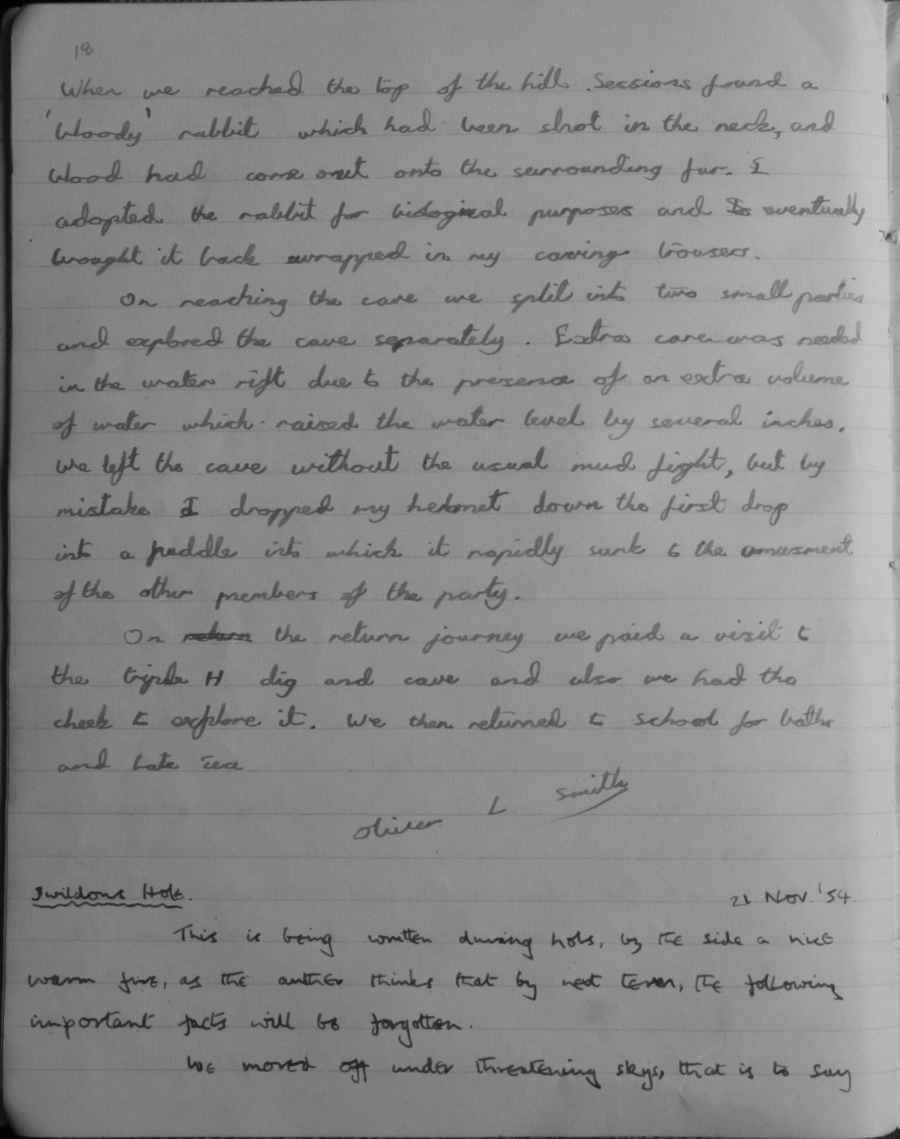 18
When we reached the top of the hill. Sessions found a
'bloody' rabbit which had been shot in the neck, and
blood had come out onto the surrounding fur. I
adopted the rabbit for biological purposes and eventually
brought it back wrapped in my caving trousers.
On reaching the cave we split into two small parties
and explored the cave separately. Extra care was needed
in the water rift due to the presence of an extra volume
of water which raised the water level by several inches.
We left the cave without the usual mud fight, but by
mistake I dropped my helmet down the first drop
into a puddle into which it rapidly sunk to the amusment
of the other members of the party.
On return the return journey we paid a visit to
the triple H dig and cave and also we had the
cheek to explore it. We then returned to school for baths
and late tea
Oliver L Smith
Swildons Hole. 21 Nov. '54
This is being written during hols, by the side a nice
warm fire, as the auther thinks that by next term, the following
important facts will be forgotten.
We moved off under threatening skys, that is to say